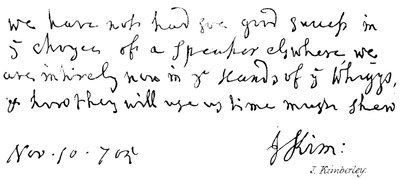 we have not had soe good success in
yͤ choyce of a speaker elswhere we
are intirely now in yͤ Hands of yͤ Whiggs,
& how they will use us time must shew
Nov. 10. 705 J Kim:
J. Kimberley.